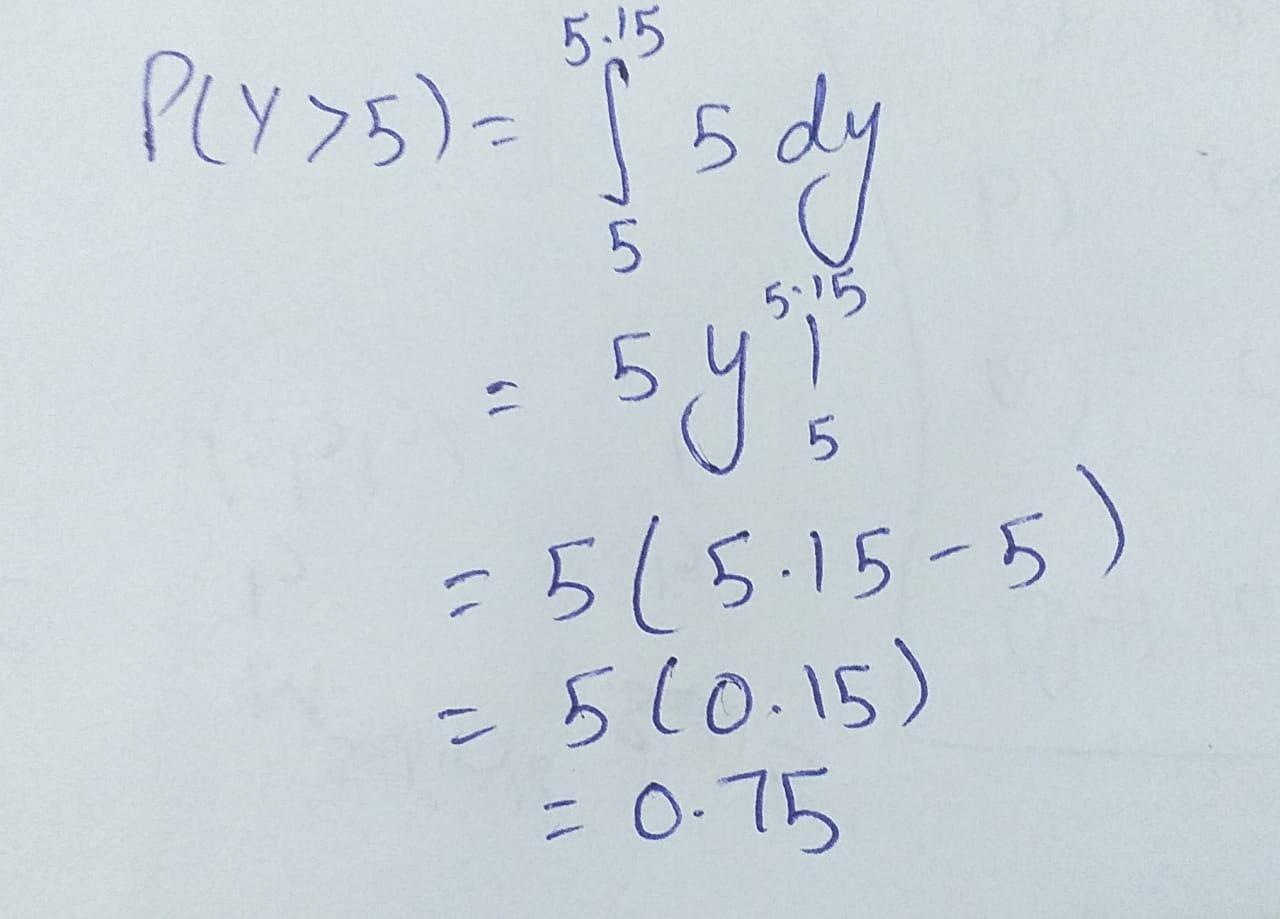 P(Y>5) = ∫₅^5.15 5 dy
= 5y |₅^5.15
= 5(5.15-5)
= 5(0.15)
= 0.75